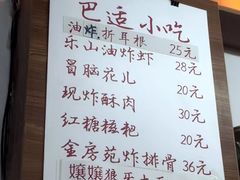 巴适小吃
油炸折耳根 25元
乐山油炸虾 28元
冒脑花儿 20元
现炸酥肉 30元
红糖糍粑 20元
金房苑炸排骨 36元